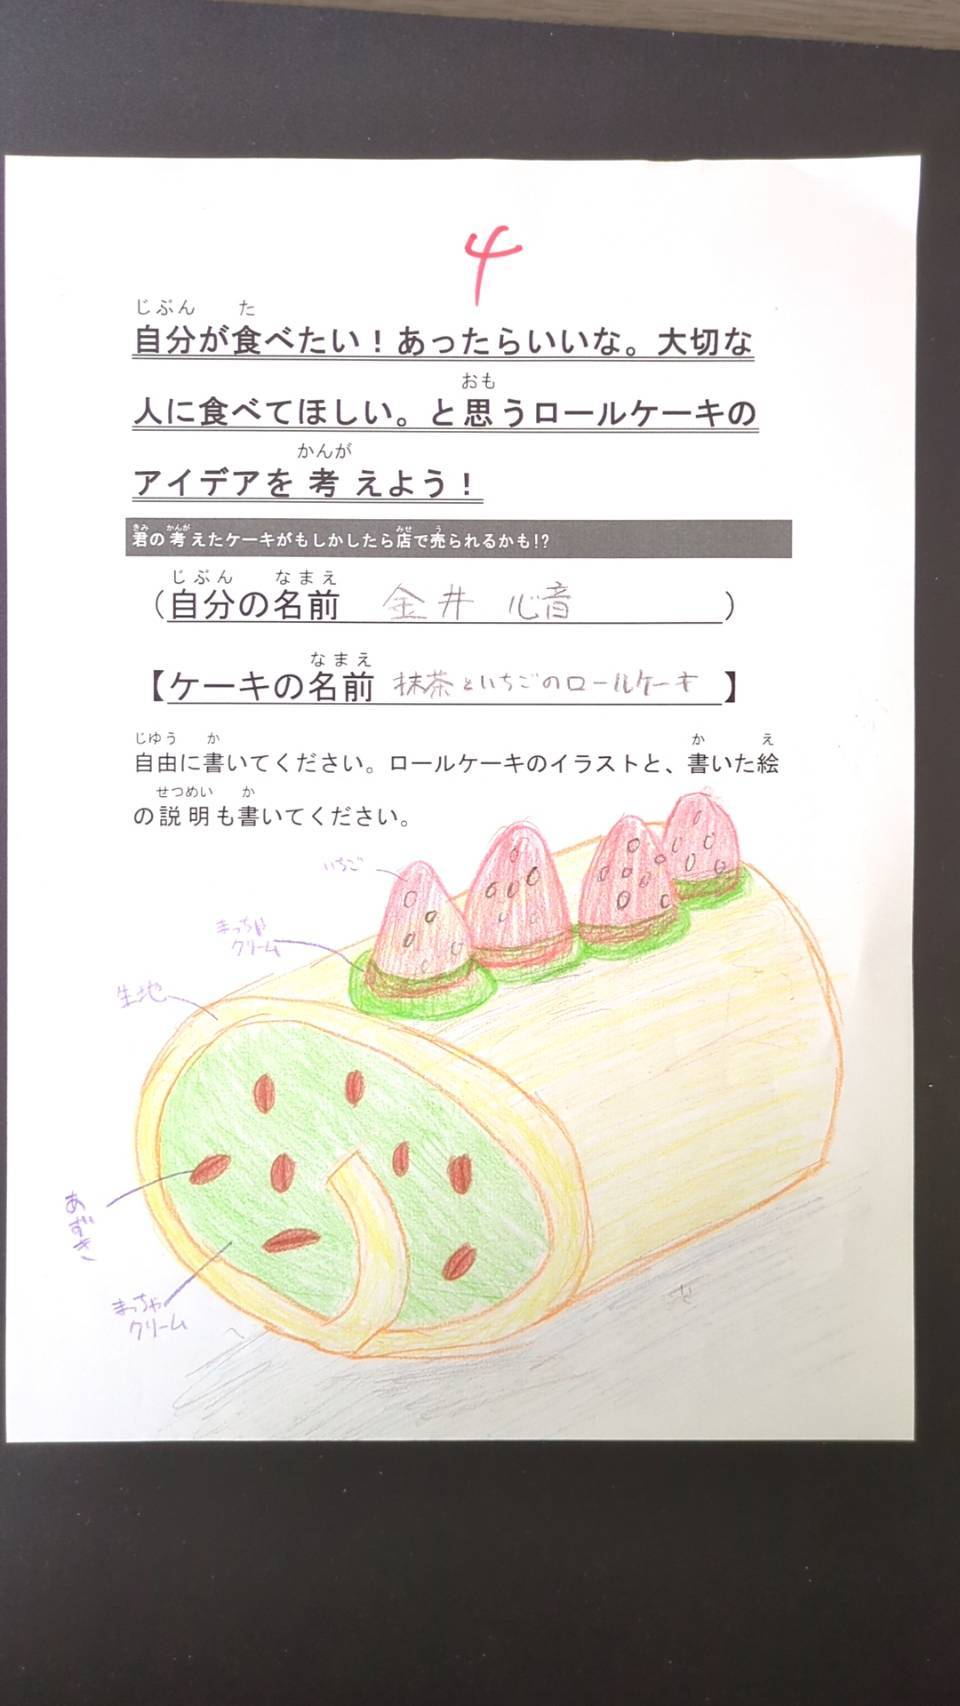 4
じぶん た
自分が食べたい！あったらいいな。大切な
おも
人に食べてほしい。と思うロールケーキの
かんが
アイデアを考えよう！
きみ かんが みせ う
君の考えたケーキがもしかしたら店で売られるかも!?
じぶん なまえ
（自分の名前 金井 心音）
なまえ
【ケーキの名前 抹茶といちごのロールケーキ】
じゆう か か え
自由に書いてください。ロールケーキのイラストと、書いた絵
せつめい か
の説明も書いてください。
いちご
まっちゃ
クリーム
生地
あずき
まっちゃ
クリーム